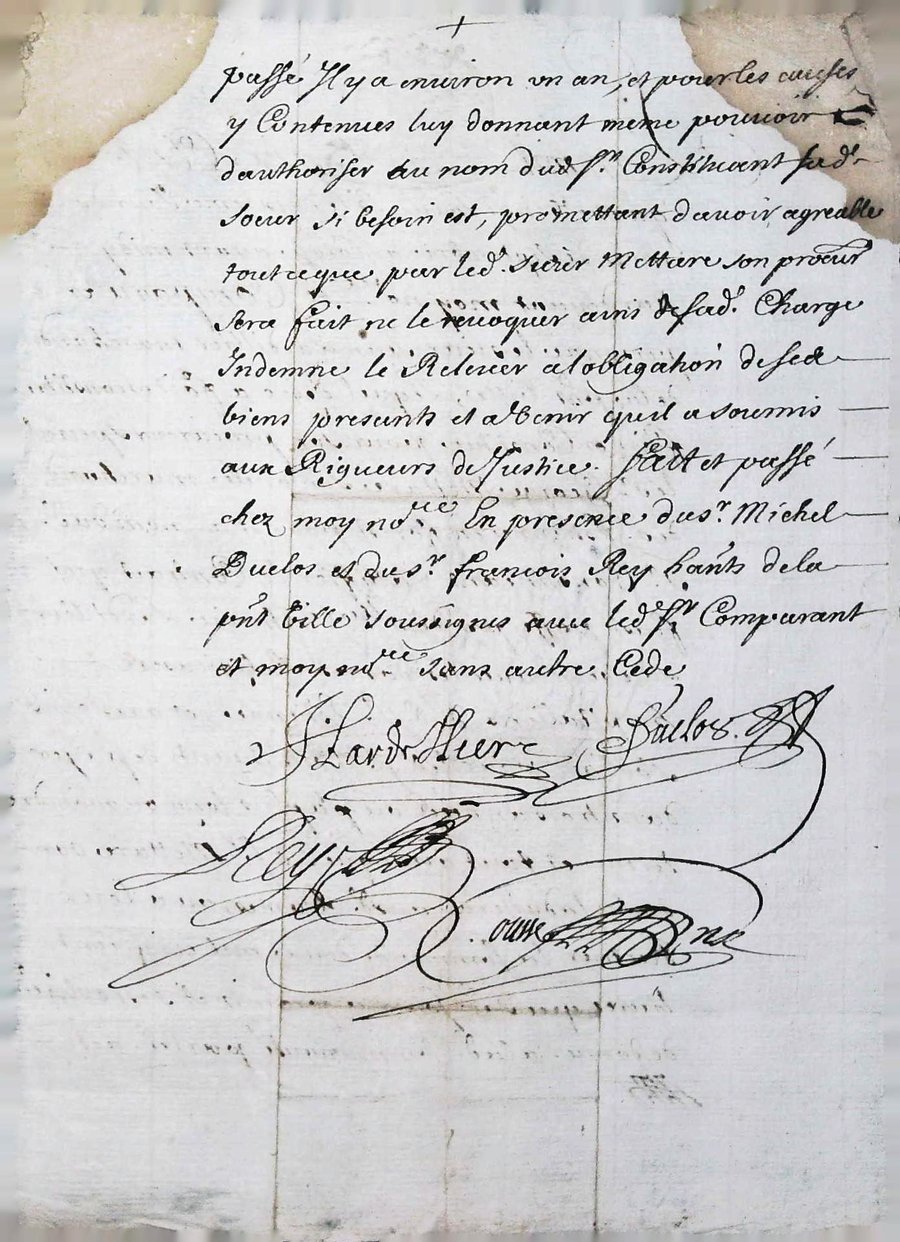 passé Il y a environ un an, et pour les causes
y Contenues luy donnant même pouvoir
d'authoriser au nom dud Sr. Constituant sad.
soeur si besoin est, promettant davoir agreable
tout ce que par led. sieur Mettare son procur
sera fait ne le revoquer ains de sad. Charge
Indemne le Relever a lobligation de ses
biens presants et advenir quil a soumis
aux Rigueurs de Justice. fait et passé
chez moy nore En presence du sr. Michel
Duclos et du sr. francois Rey hants de la
pnt ville soussignes avec led Sr Comparant
et moy nore sans autre Cede
Duclos.
Rey
ne